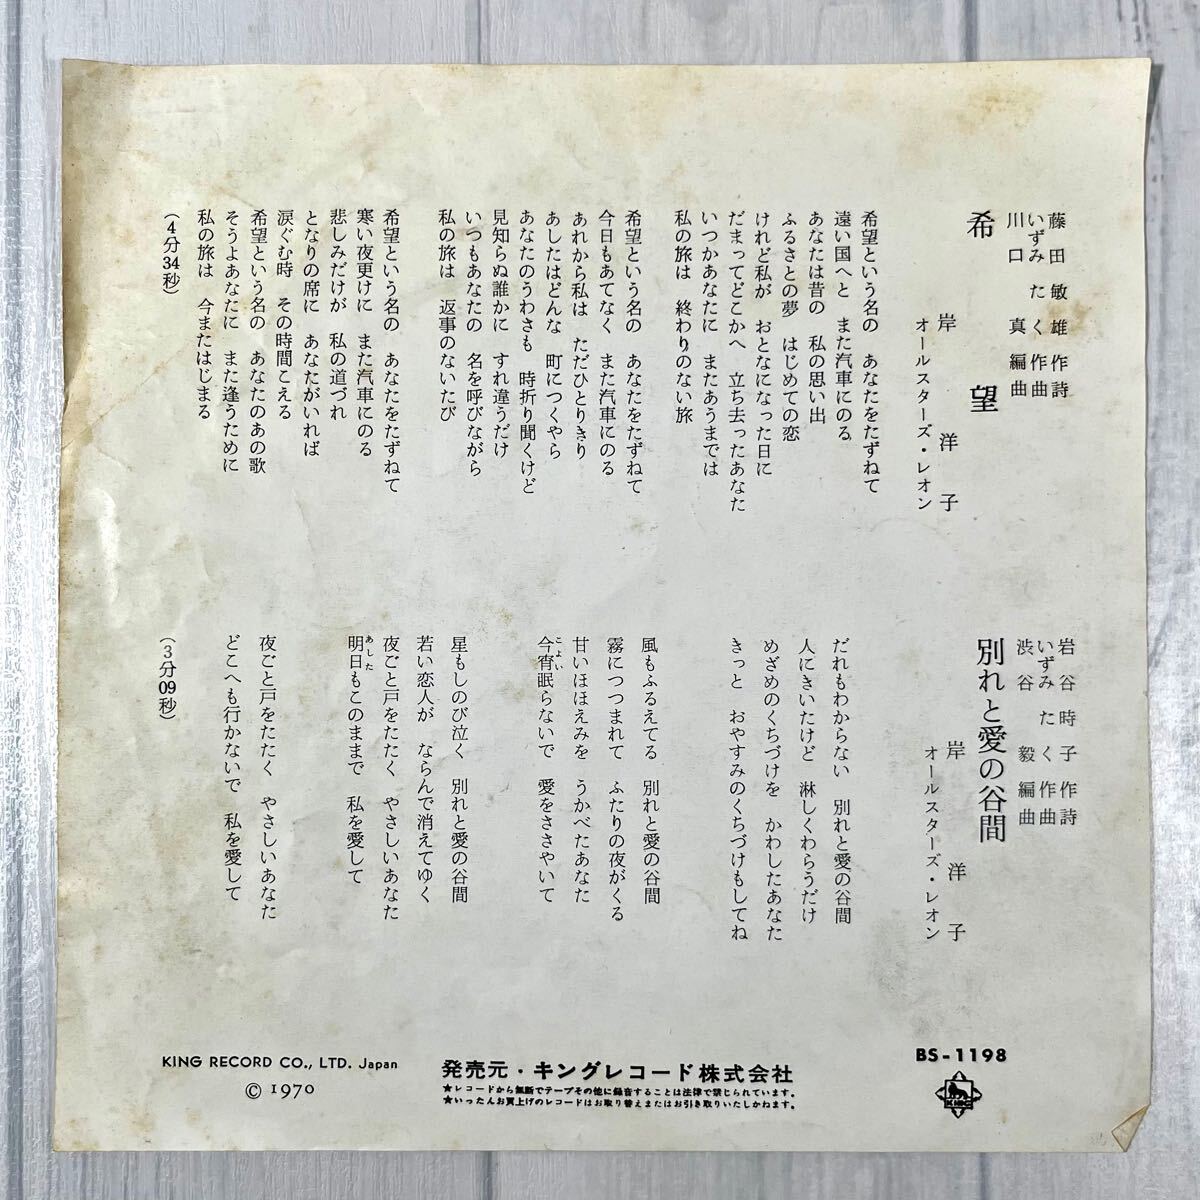 藤田敏雄作詩
いずみたく作曲
川口真編曲
希望
岸洋子
オールスターズ・レオン
希望という名の あなたをたずねて
遠い国へと また汽車にのる
あなたは昔の 私の思い出
ふるさとの夢 はじめての恋
けれど私が おとなになった日に
だまってどこかへ 立ち去ったあなた
いつかあなたに またあうまでは
私の旅は 終わりのない旅
希望という名の あなたをたずねて
今日もあてなく また汽車にのる
あれから私は ただひとりきり
あしたはどんな 町につくやら
あなたのうわさも 時折り聞くけど
見知らぬ誰かに すれ違うだけ
いつもあなたの 名を呼びながら
私の旅は 返事のないたび
希望という名の あなたをたずねて
寒い夜更けに また汽車にのる
悲しみだけが 私の道づれ
となりの席に あなたがいれば
涙ぐむ時 その時聞こえる
希望という名の あなたのあの歌
そうよあなたに また逢うために
私の旅は 今またはじまる
(4分34秒)
岩谷時子作詩
いずみたく作曲
渋谷毅編曲
別れと愛の谷間
岸洋子
オールスターズ・レオン
だれもわからない 別れと愛の谷間
人にきいたけど 淋しくわらうだけ
めざめのくちづけを かわしたあなた
きっと おやすみのくちづけもしてね
風もふるえてる 別れと愛の谷間
霧につつまれて ふたりの夜がくる
甘いほほえみを うかべたあなた
今宵眠らないで 愛をささやいて
こよい
星もしのび泣く 別れと愛の谷間
若い恋人が ならんで消えてゆく
夜ごと戸をたたく やさしいあなた
明日もこのままで 私を愛して
あした
夜ごと戸をたたく やさしいあなた
どこへも行かないで 私を愛して
(3分09秒)
KING RECORD CO., LTD. Japan
© 1970
発売元・キングレコード株式会社
★レコードから無断でテープその他に録音することは法律で禁じられています。
★いったんお買上げのレコードはお取り替えまたはお引き取りいたしかねます。
BS-1198
KING